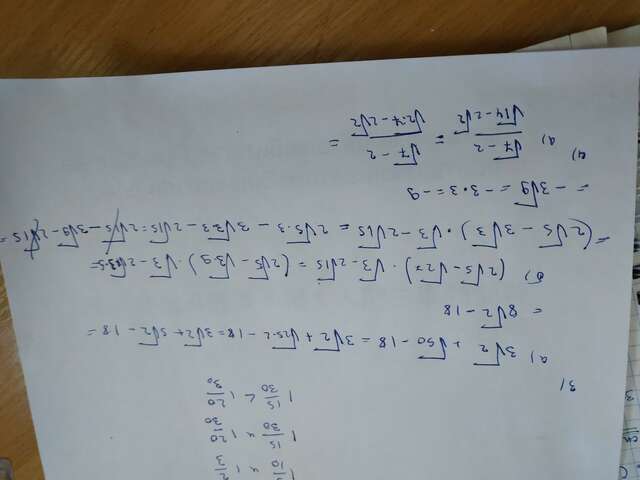 1 5/10 и 1 2/3
1 15/30 и 1 20/30
1 15/30 < 1 20/30
3)
а) 3√2 + √50 - 18 = 3√2 + √25·2 - 18 = 3√2 + 5√2 - 18 =
= 8√2 - 18
б) (2√5 - √27) · √3 - 2√15 = (2√5 - √3·9) · √3 - 2√3·5 =
= (2√5 - 3√3) · √3 - 2√15 = 2√5·3 - 3√3·3 - 2√15 = 2√15 - 3√9 - 2√15 =
= - 3√9 = - 3·3 = - 9
4)
а) (√7 - 2)/(√14 - 2√2) = (√7 - 2)/(√2·7 - 2√2) =